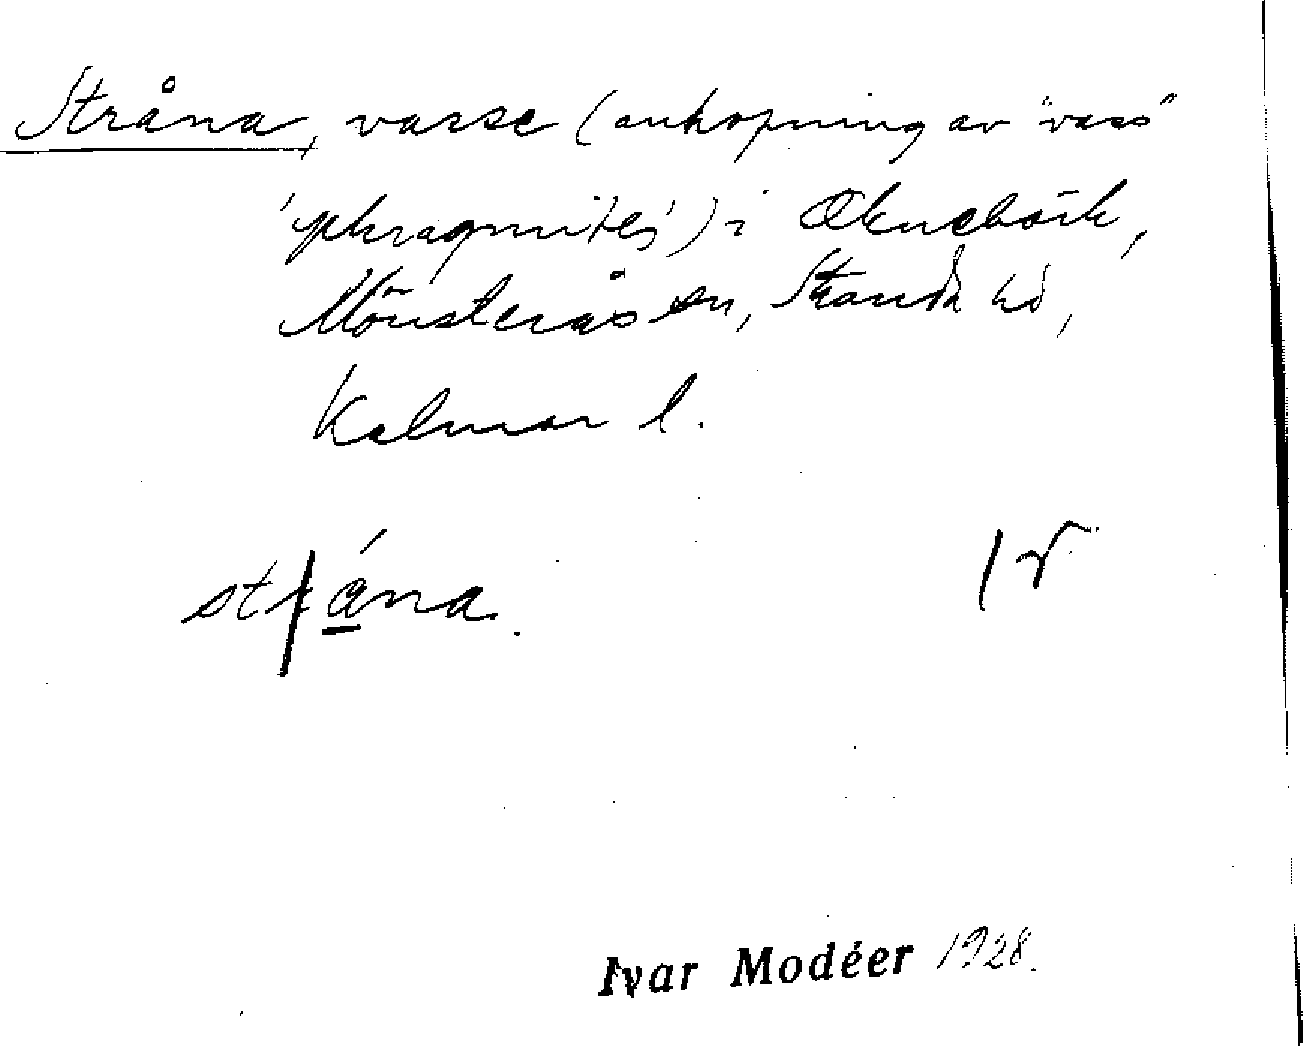 Stråna, vasse (anhopning av "vass"
'phragmites') i Oknebäck,
Mönsterås sn, Stranda hd,
Kalmar l.
strána.
Ivar Modéer 1928.